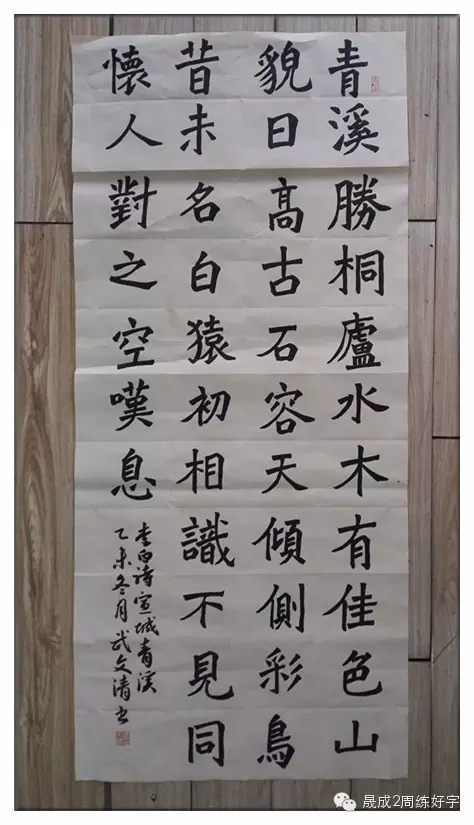 青溪勝桐廬水木有佳色山
貌日高古石容天傾側彩鳥
昔未名白猿初相識不見同
懷人對之空嘆息
李白诗宣城青溪
乙未冬月武文清书
晟成2周练好字